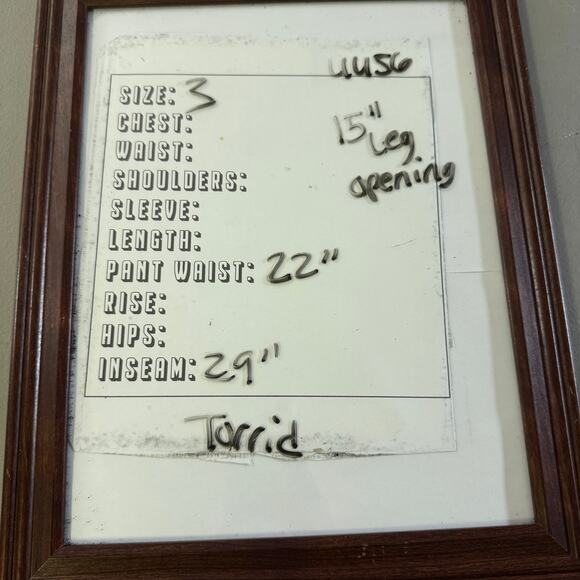 UU56
SIZE: 3
CHEST:
15"
WAIST:
Leg
SHOULDERS:
opening
SLEEVE:
LENGTH:
PANT WAIST: 22"
RISE:
HIPS:
INSEAM: 29"
Torrid